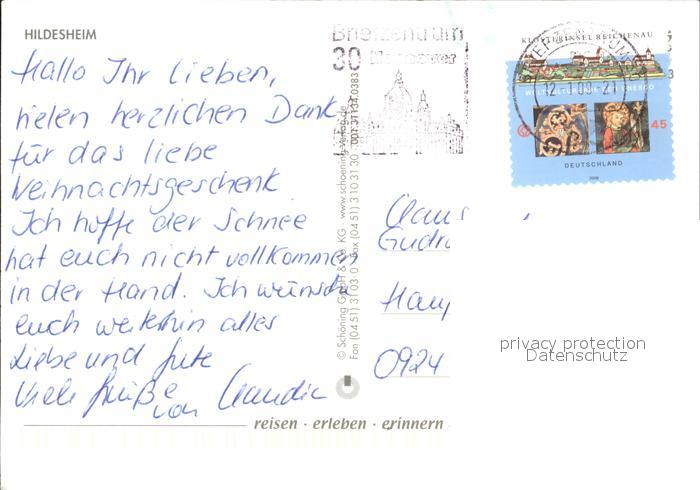 HILDESHEIM
Hallo Ihr Lieben,
vielen herzlichen Dank
für das liebe
Weihnachtsgeschenk
Ich hoffe der Schnee
hat euch nicht vollkommen
in der Hand. Ich wünsche
euch weiterhin alles
Liebe und Gute
Viele Grüße
von Claudia
© Schöning GmbH & Co. KG · www.schoening-verlag.de
Fon (04 51) 3 10 3 - 0 · Fax (04 51) 3 10 3 1 30
Briefzentrum
30
KLOSTERINSEL REICHENAU
WELTKULTURERBE DER UNESCO
45
DEUTSCHLAND
2008
Claus
Gudru
Haup
0924
privacy protection
Datenschutz
reisen · erleben · erinnern